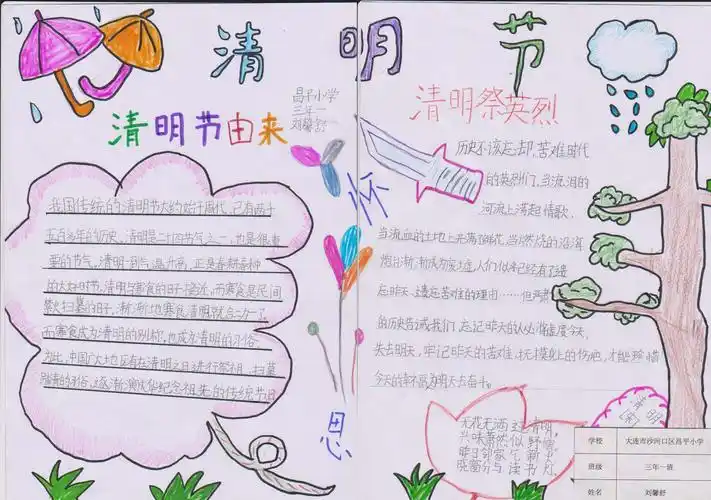 清明节
清明节由来
昌平小学
三年一
刘馨舒
我国传统的清明节大约始于周代,已有两千
五百多年的历史,清明是二十四节气之一,也是很重
要的节气,清明一到,气温升高,正是春耕春种
的大好时节,清明与寒食的日子接近,而寒食是民间
禁火扫墓的日子,渐渐地寒食清明就合二为一了
而寒食成为清明的别称,也成为清明的习俗
为此,中国广大地区有在清明之日进行祭祖、扫墓
踏青的习俗,逐渐演化华纪念祖先的传统节日
怀
思
清明祭英烈
历史不该忘却,苦难时代
的英烈们,当流泪的
河流上荡起情歌,
当流血的土地上开满鲜花,当燃烧的沿海
炮台渐渐成为废墟,人们似乎已经有了遗
忘昨天、遗忘苦难的理由……但严肃
的历史告诉我们,忘记昨天的人必
今天,
失去明天,牢记昨天的苦难,抚摸身上的伤疤,才能珍惜
今天的幸福,为明天去奋斗。
无花无酒过清明,
兴味萧然似野僧
昨日邻家乞新火
晓窗分与读书灯
清明
学校 大连市沙河口区昌平小学
班级 三年一班
姓名 刘馨舒